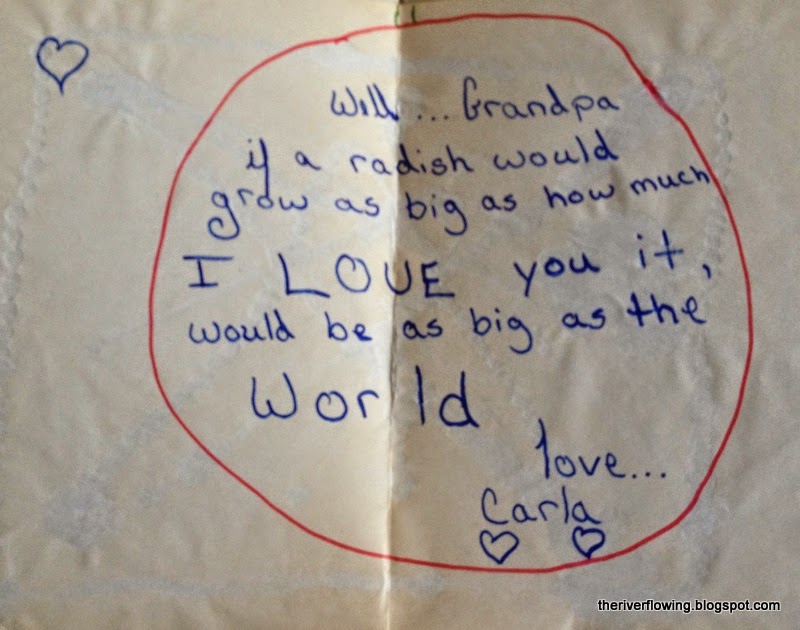 Well... Grandpa
if a radish would
grow as big as how much
I LOVE you it,
would be as big as the
World
love...
Carla
theriverflowing.blogspot.com